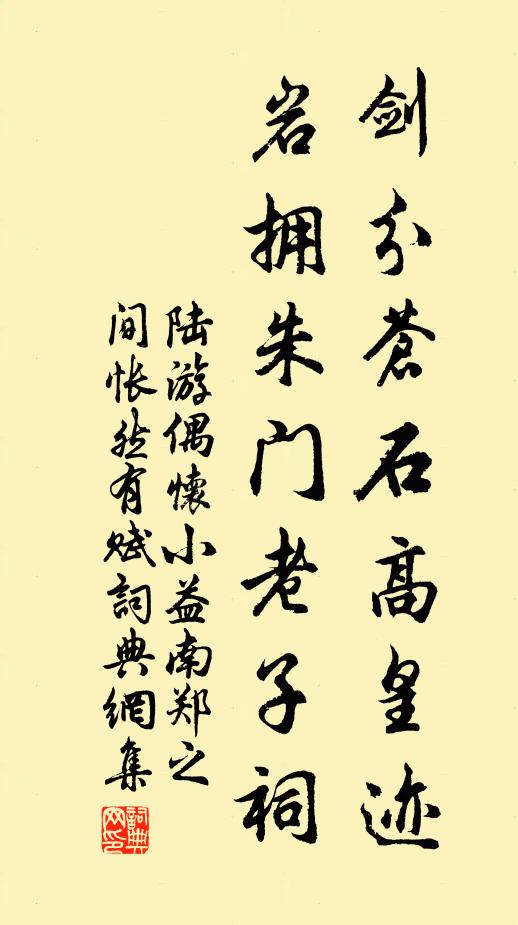 剑分苍石高皇迹
岩拥朱门老子祠
陆游偶懷小益南郑之
间怅然有赋詞典網集
詞典
网印